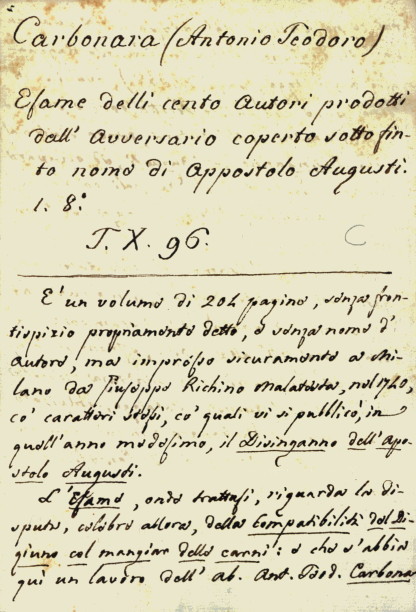 Carbonara (Antonio Teodoro)
Esame delli cento Autori prodotti
dall' Avversario coperto sotto fin-
to nome di Appostolo Augusti.
1. 8.°
T. X. 96.
E' un volume di 204 pagine, senza fron-
tispizio propriamente detto, e senza nome d'
autore, ma impresso sicuramente a Mi-
lano da Giuseppe Richino Malatesta, nel 1740,
co' caratteri stessi, co' quali vi si pubblicò, in
quell' anno medesimo, il Disinganno dell' Apo-
stolo Augusti.
L' Esame, onde trattasi, riguarda la di-
sputa, celebre allora, della Compatibilità del Di-
giuno col mangiar delle carni: e che s' abbia
qui un lavoro dell' ab. Ant. Teod. Carbona-